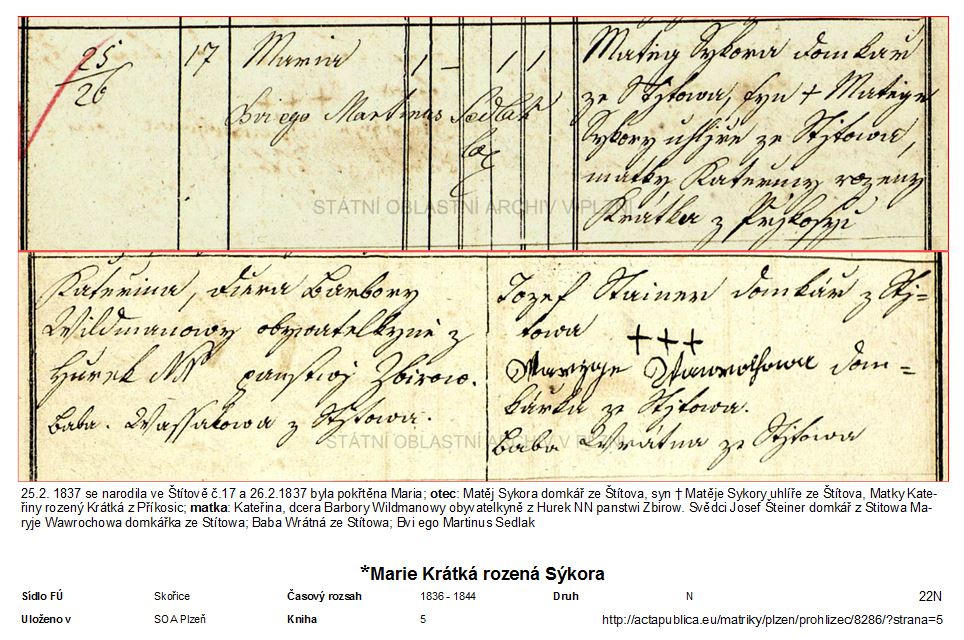 25
26
17
Maria
1 – 1 1
Bvi ego Martinus Sedlak
Matěg Sykora domkař
ze Sstjtowa, syn † Matěge
Sykory uhljře ze Sstjtowa,
matky Kateřiny rozeny
Krátka z Přjkosyc
STÁTNÍ OBLASTNÍ ARCHIV V PLZNI
Kateřina, dcera Barbory
Wildmanowy obywatelkyně z
Hurek NN panstwj Zbirow.
baba. Wassakowa z Sstjtowa.
Jozef Stainer domkář z Sstj=
towa
+++
Maryge Wawrochowa dom=
kárka ze Sstjtowa.
baba Wrátna ze Sstjtowa
STÁTNÍ OBLASTNÍ ARCHIV V PLZNI
25.2. 1837 se narodila ve Štítově č.17 a 26.2.1837 byla pokřtěna Maria; otec: Matěj Sykora domkář ze Štítova, syn † Matěje Sykory uhlíře ze Štítova, Matky Kate-
řiny rozený Krátká z Příkosic; matka: Kateřina, dcera Barbory Wildmanowy obywatelkyně z Hurek NN panstwi Zbirow. Svědci Josef Steiner domkář z Stitowa Ma-
ryje Wawrochowa domkářka ze Stítowa; Baba Wrátná ze Stítowa; Bvi ego Martinus Sedlak
*Marie Krátká rozená Sýkora
Sídlo FÚ Skořice Časový rozsah 1836 - 1844 Druh N 22N
Uloženo v SOA Plzeň Kniha 5 http://actapublica.eu/matriky/plzen/prohlizec/8286/?strana=5